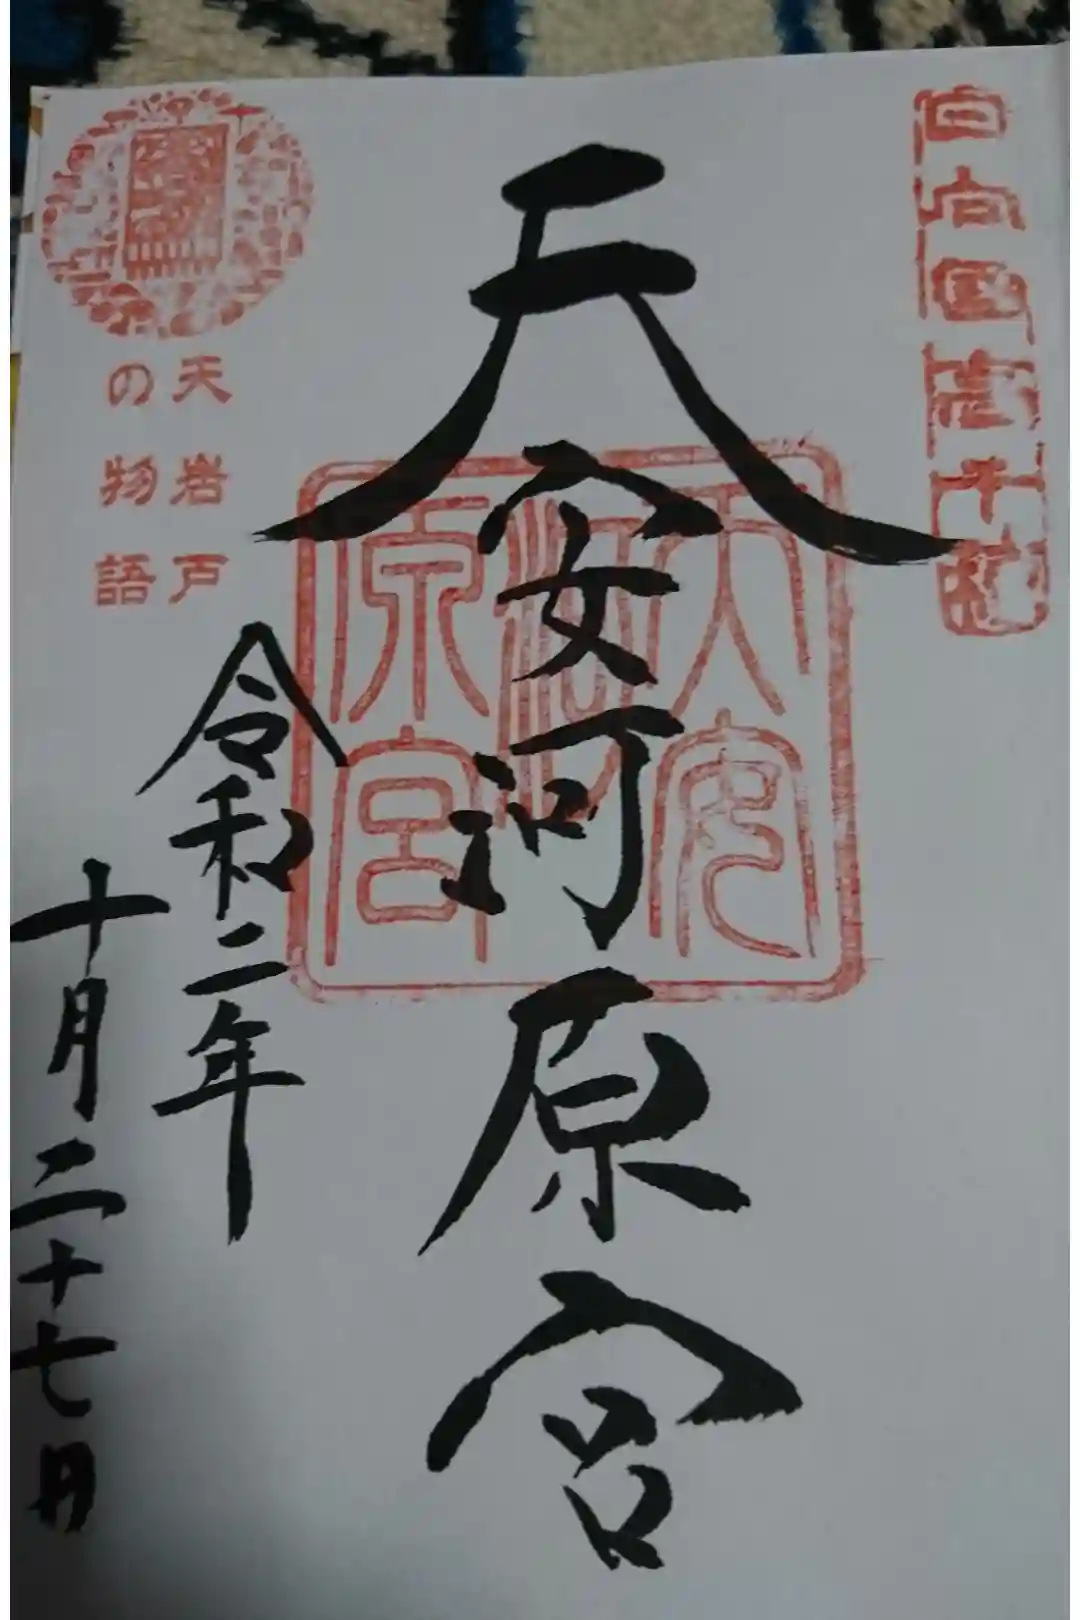 日向国高千穂
天安河原宮
天安河原宮
天岩戸
の物語
令和二年
十月二十七日